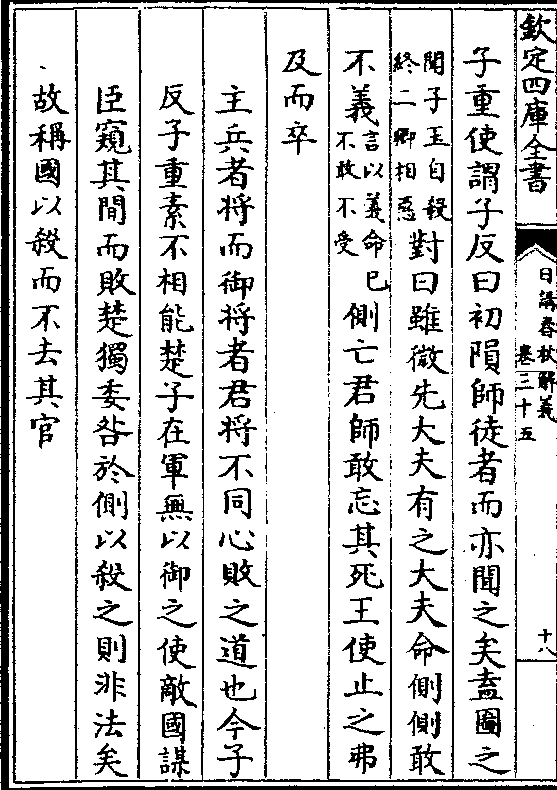 欽定四庫全書
日講春秋解義
卷三十五
十八
子重使謂子反曰初隕師徒者而亦聞之矣盍圖之
聞子玉自殺
終二卿相惡
對曰雖微先大夫有之大夫命側側敢
不義
言以義命己
不敢不受
側亡君師敢忘其死王使止之弗
及而卒
主兵者將而御將者君將不同心敗之道也今子
反子重素不相能楚子在軍無以御之使敵國謀
臣窺其間而敗楚獨委咎於側以殺之則非法矣
故稱國以殺而不去其官